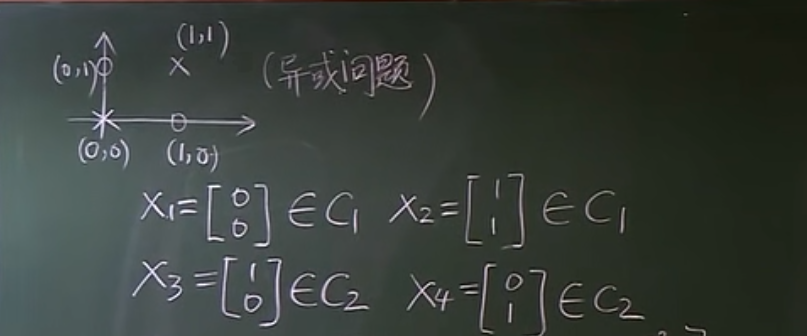 (1,1)
(0,1) (异或问题)
(0,0) (1,0)
X₁=[0 0] ∈ C₁ X₂=[1 1] ∈ C₁
X₃=[1 0] ∈ C₂ X₄=[0 1] ∈ C₂